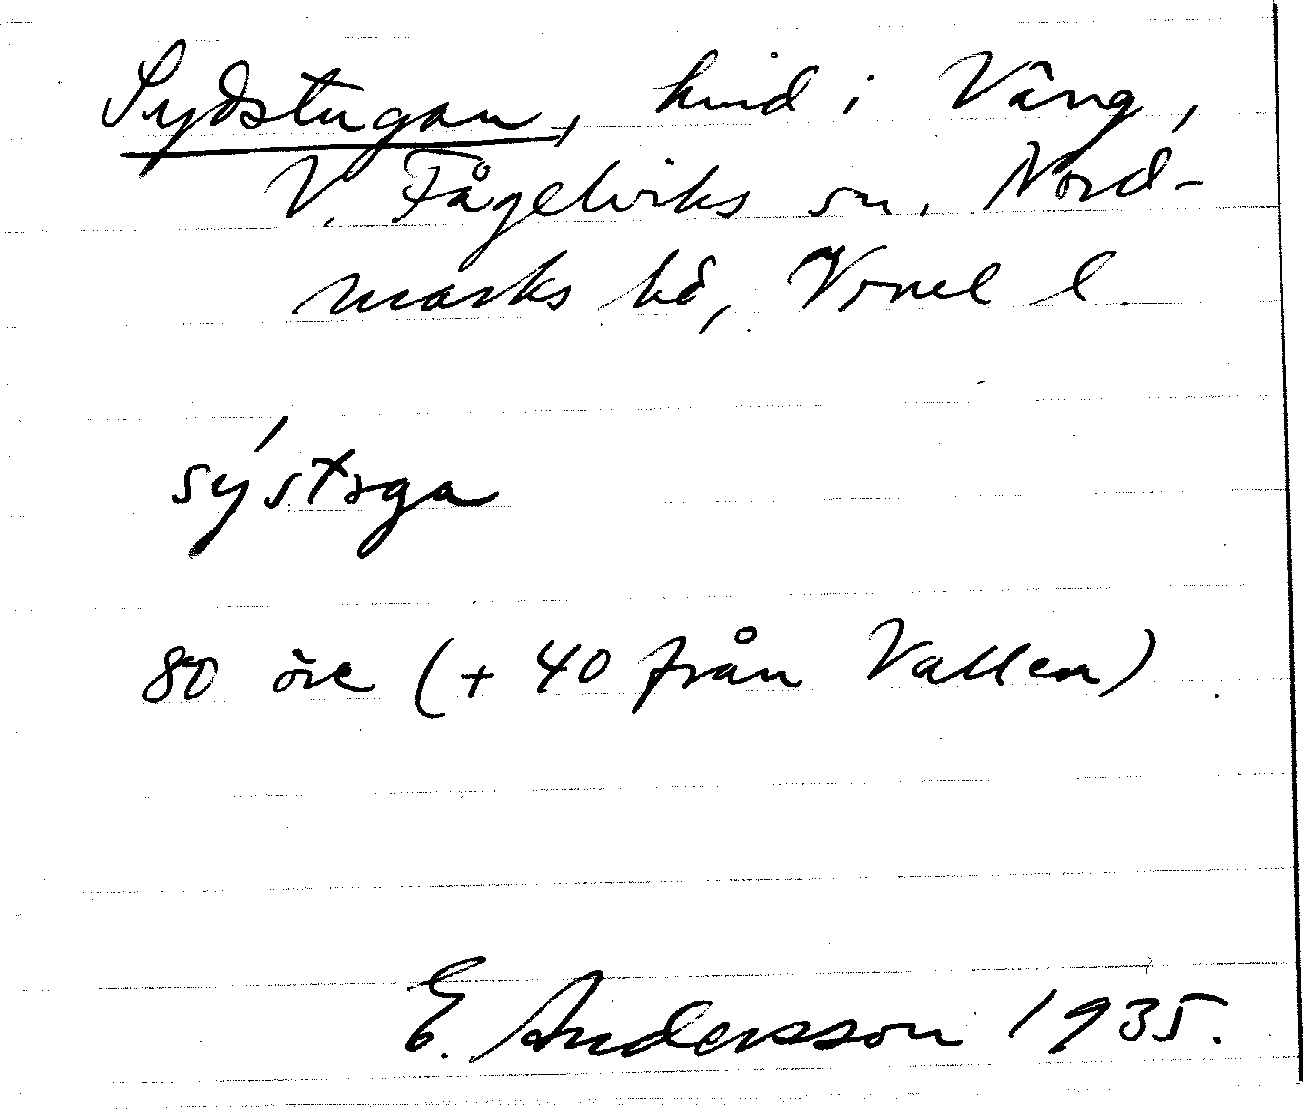 Sydstugan, hmd i Vång,
V. Fågelviks sn, Nord-
marks hd, Vrml l.
sýstoga
80 öre (+ 40 från Vallen)
E. Andersson 1935.